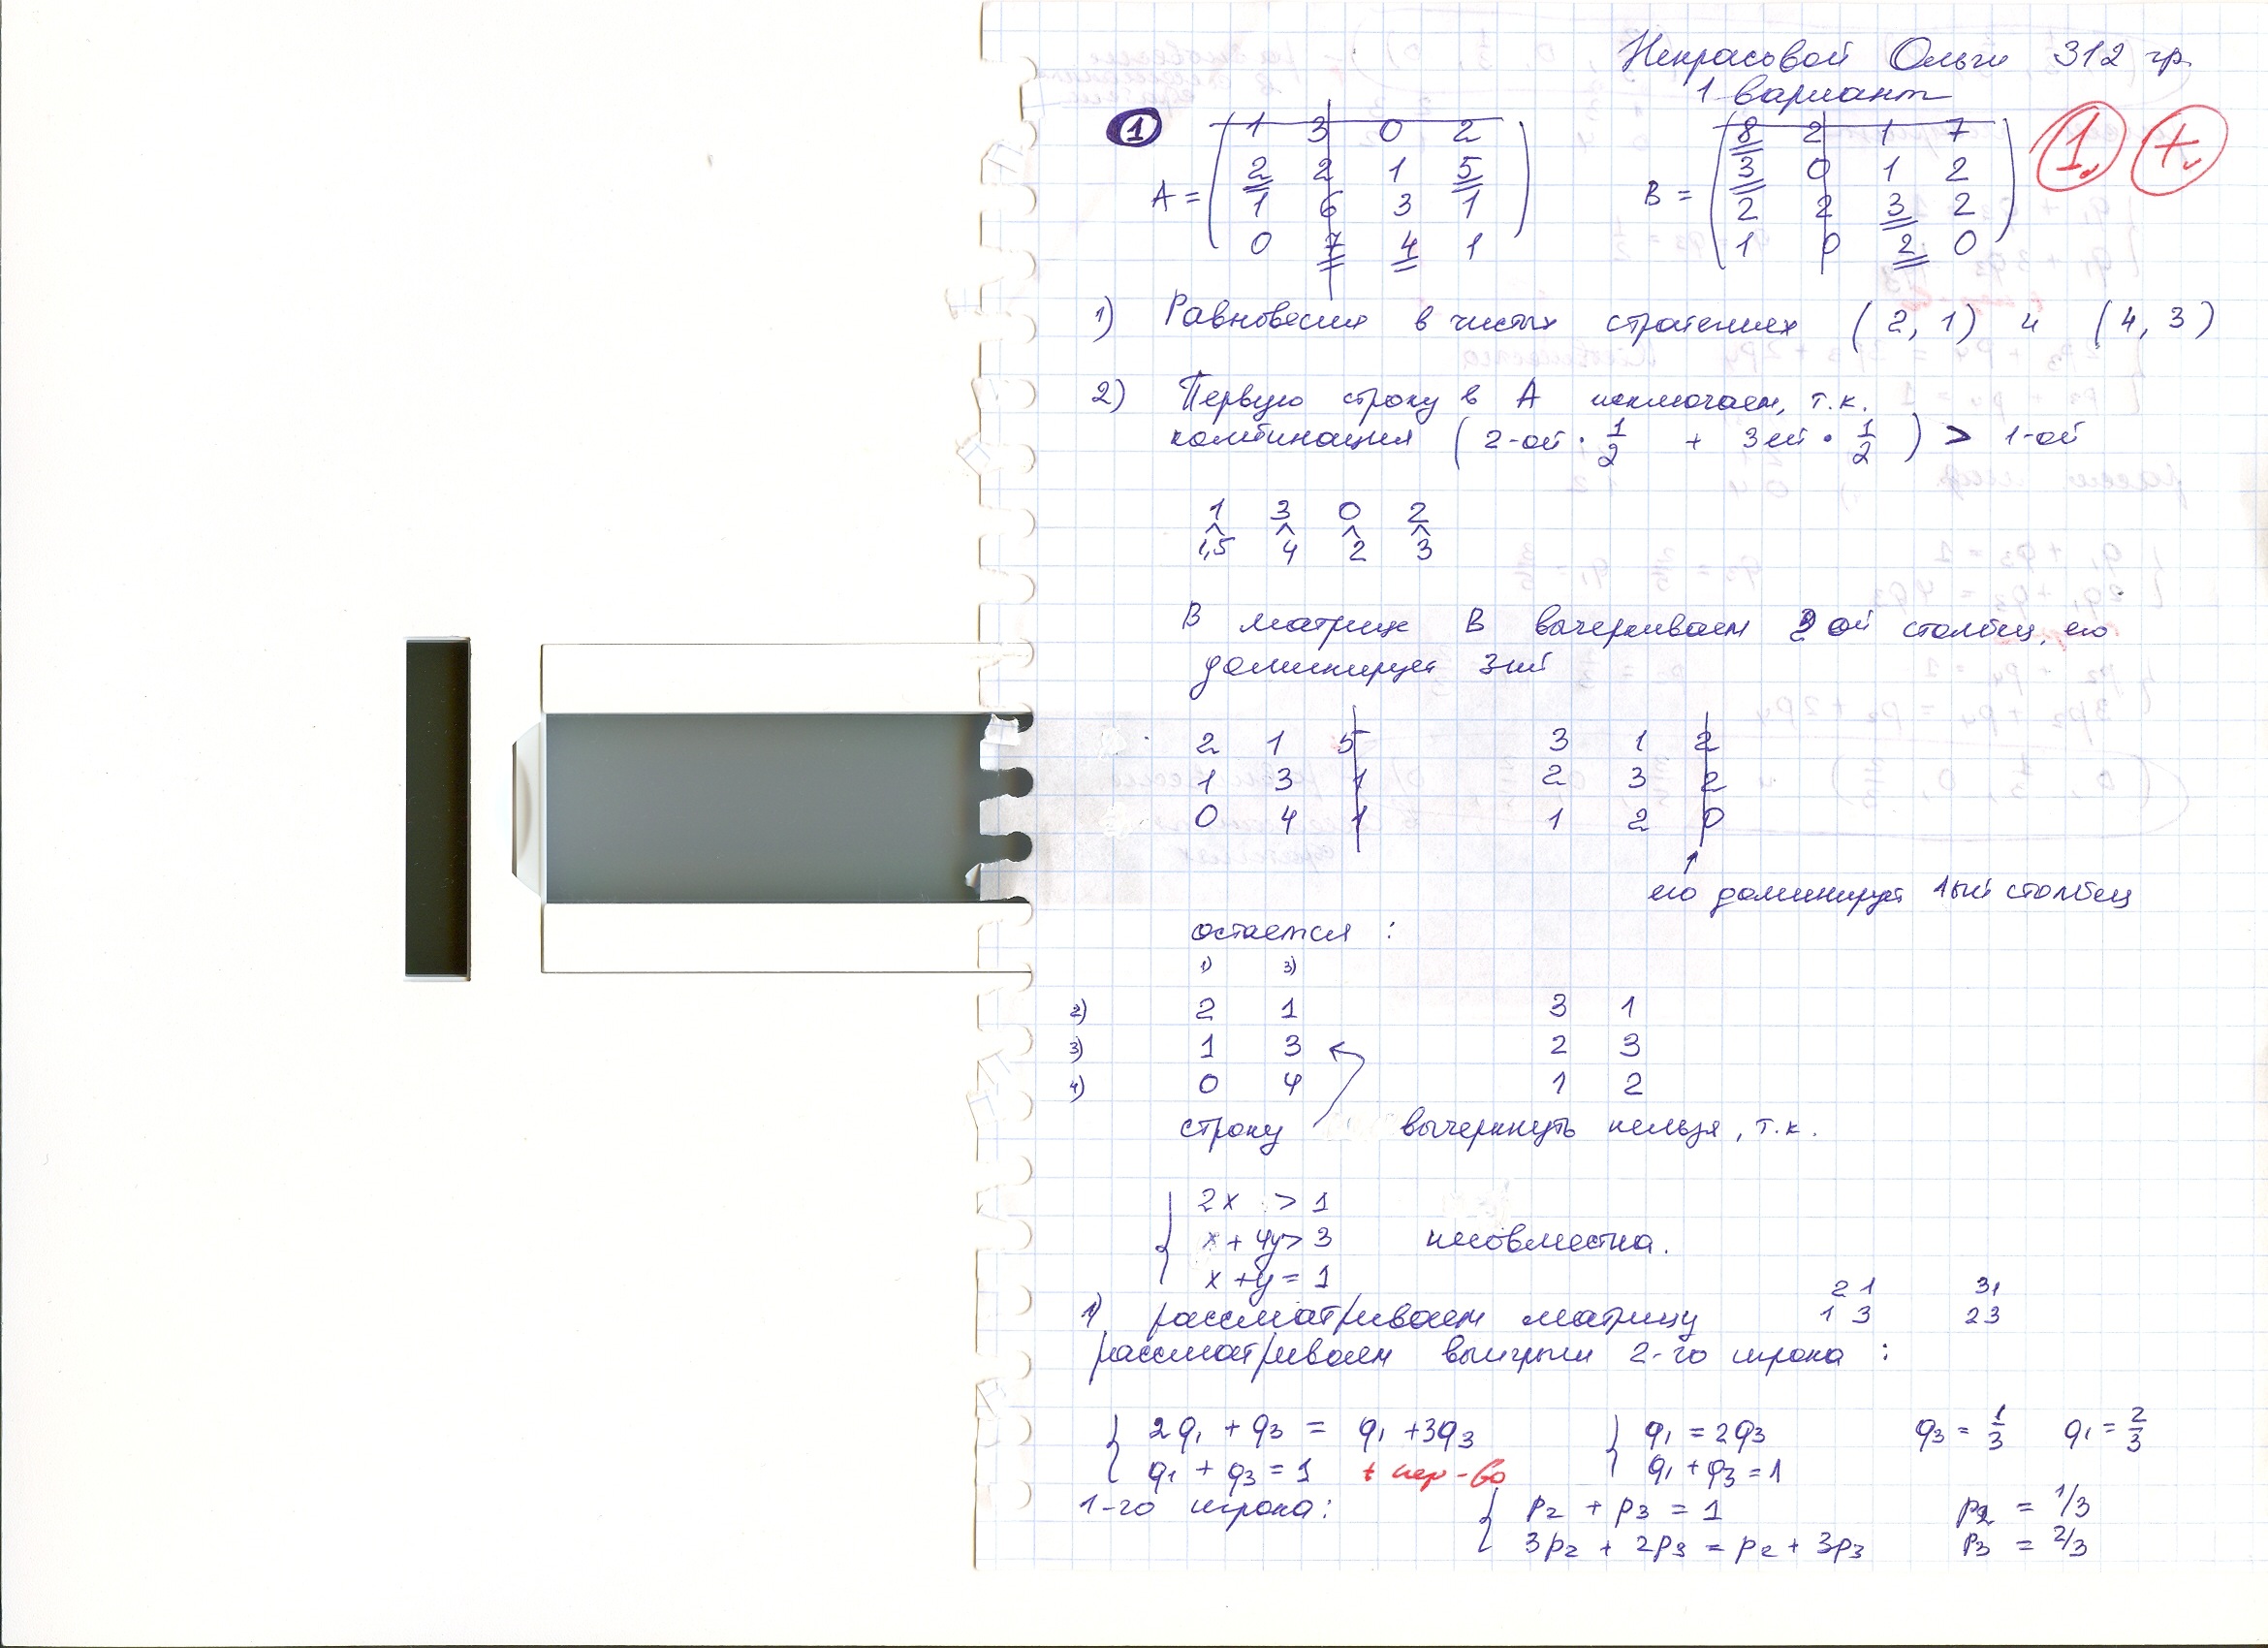 Некрасовой Ольги 312 гр.
1 вариант
1
A = ( 1 3 0 2
2 2 1 5
1 6 3 1
0 7 4 1 )
B = ( 8 2 1 7
3 0 1 2
2 2 3 2
1 0 2 0 )
1. +.
1) Равновесия в чистых стратегиях (2, 1) и (4, 3)
2) Первую строку в A исключаем, т.к.
комбинация (2-ой · 1/2 + 3ей · 1/2) > 1-ой
1 3 0 2
^ ^ ^ ^
1,5 4 2 3
В матрице B вычеркиваем 2 ой столбец, его
доминирует 3ий
2 1 5 3 1 2
1 3 1 2 3 2
0 4 1 1 2 0
↑
его доминирует 1ый столбец
остается :
1) 3)
2) 2 1 3 1
3) 1 3 2 3
4) 0 4 1 2
строку вычеркнуть нельзя, т.к.
{ 2x > 1
x + 4y > 3 несовместна.
x + y = 1
1) рассматриваем матрицу 2 1 3 1
1 3 2 3
рассматриваем выигрыши 2-го игрока :
{ 2q₁ + q₃ = q₁ + 3q₃ { q₁ = 2q₃ q₃ = 1/3 q₁ = 2/3
q₁ + q₃ = 1 + нер-во q₁ + q₃ = 1
1-го игрока: { p₂ + p₃ = 1 p₂ = 1/3
3p₂ + 2p₃ = p₂ + 3p₃ p₃ = 2/3